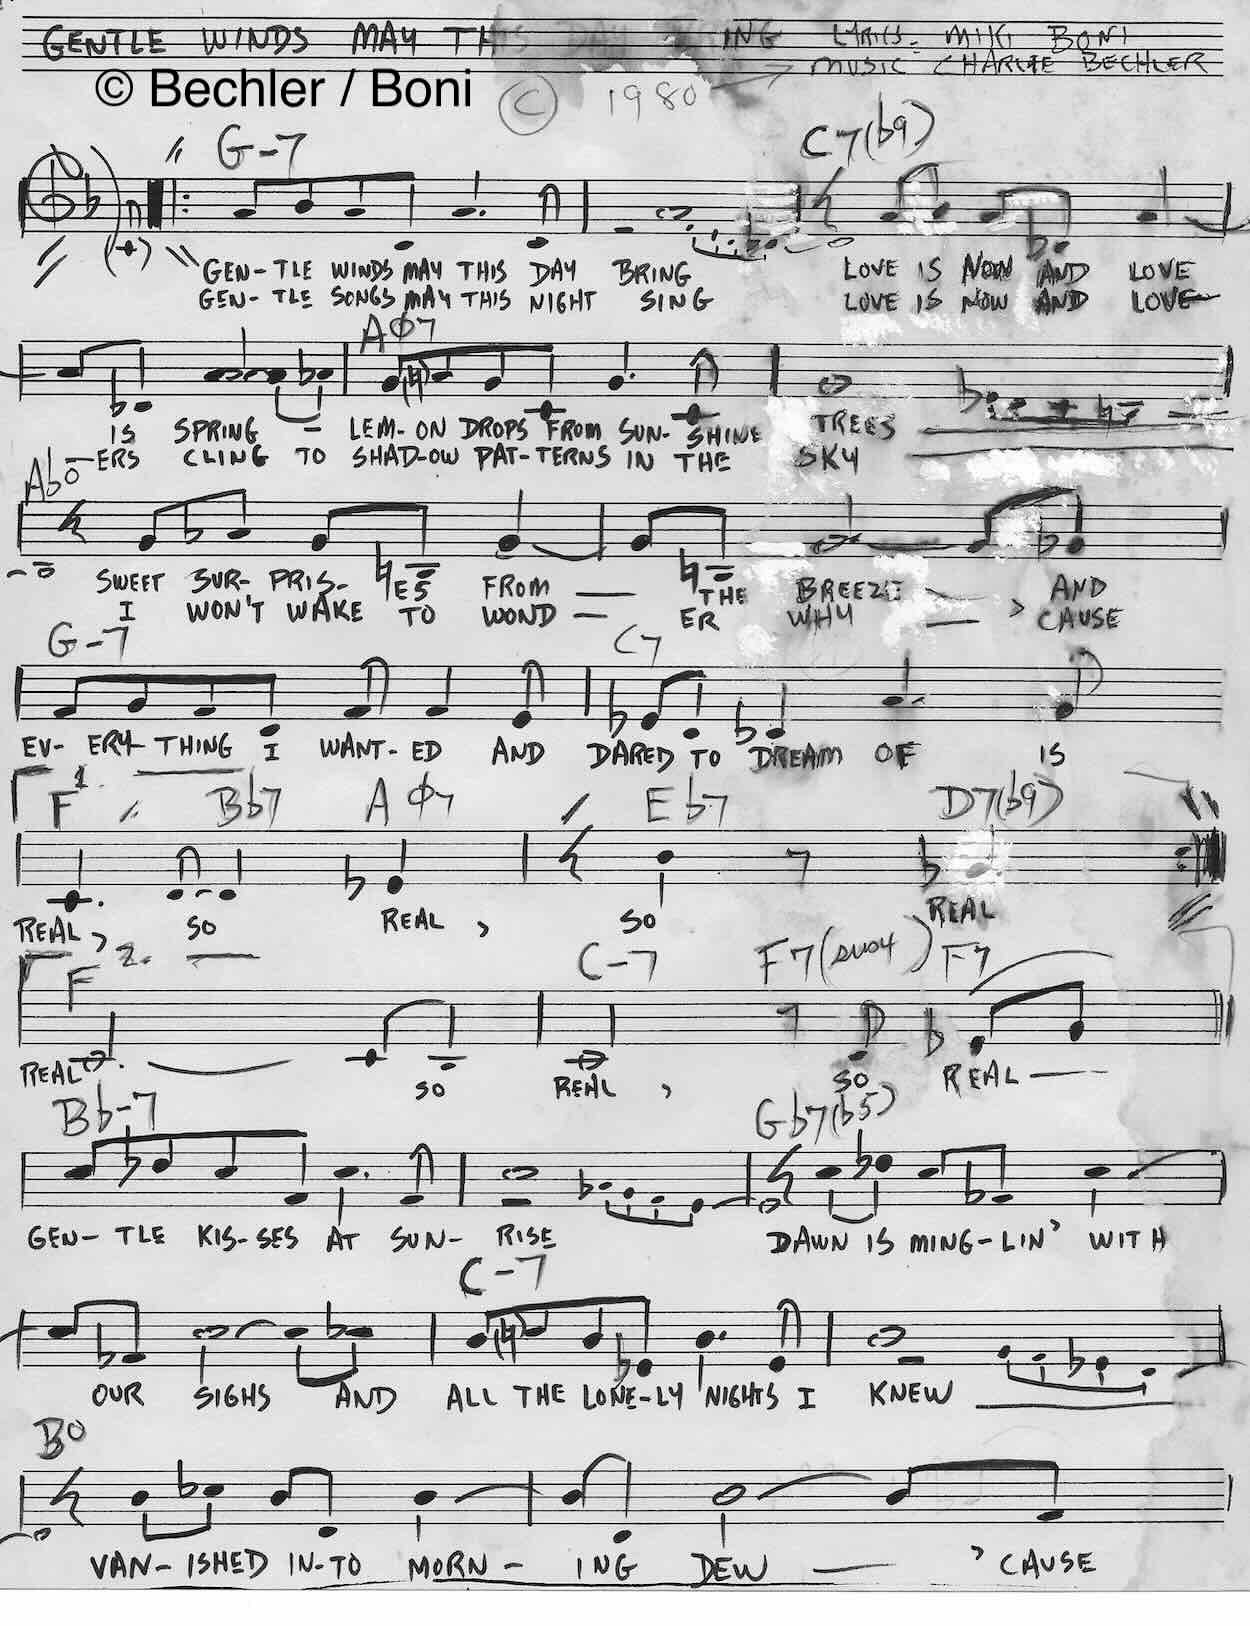 GENTLE WINDS MAY THIS DAY BRING LYRICS - MIKI BONI
MUSIC CHARLIE BECHLER
© Bechler / Boni © 1980
G-7 C7(b9)
GEN-TLE WINDS MAY THIS DAY BRING LOVE IS NOW AND LOVE
GEN-TLE SONGS MAY THIS NIGHT SING LOVE IS NOW AND LOVE
AØ7
IS SPRING - LEM-ON DROPS FROM SUN-SHINE TREES
-ERS CLING TO SHAD-OW PAT-TERNS IN THE SKY
Abo
SWEET SUR-PRIS-ES FROM THE BREEZE AND
I WON'T WAKE TO WOND - ER WHY 'CAUSE
G-7 C7
EV-ERY-THING I WANT-ED AND DARED TO DREAM OF IS
1.
F Bb7 AØ7 Eb7 D7(b9)
REAL, SO REAL, SO REAL
2.
F C-7 F7(sus4) F7
REAL SO REAL, SO REAL
Bb-7 Gb7(b5)
GEN-TLE KIS-SES AT SUN-RISE DAWN IS MING-LIN' WITH
C-7
OUR SIGHS AND ALL THE LONE-LY NIGHTS I KNEW
Bo
VAN-ISHED IN-TO MORN-ING DEW - 'CAUSE